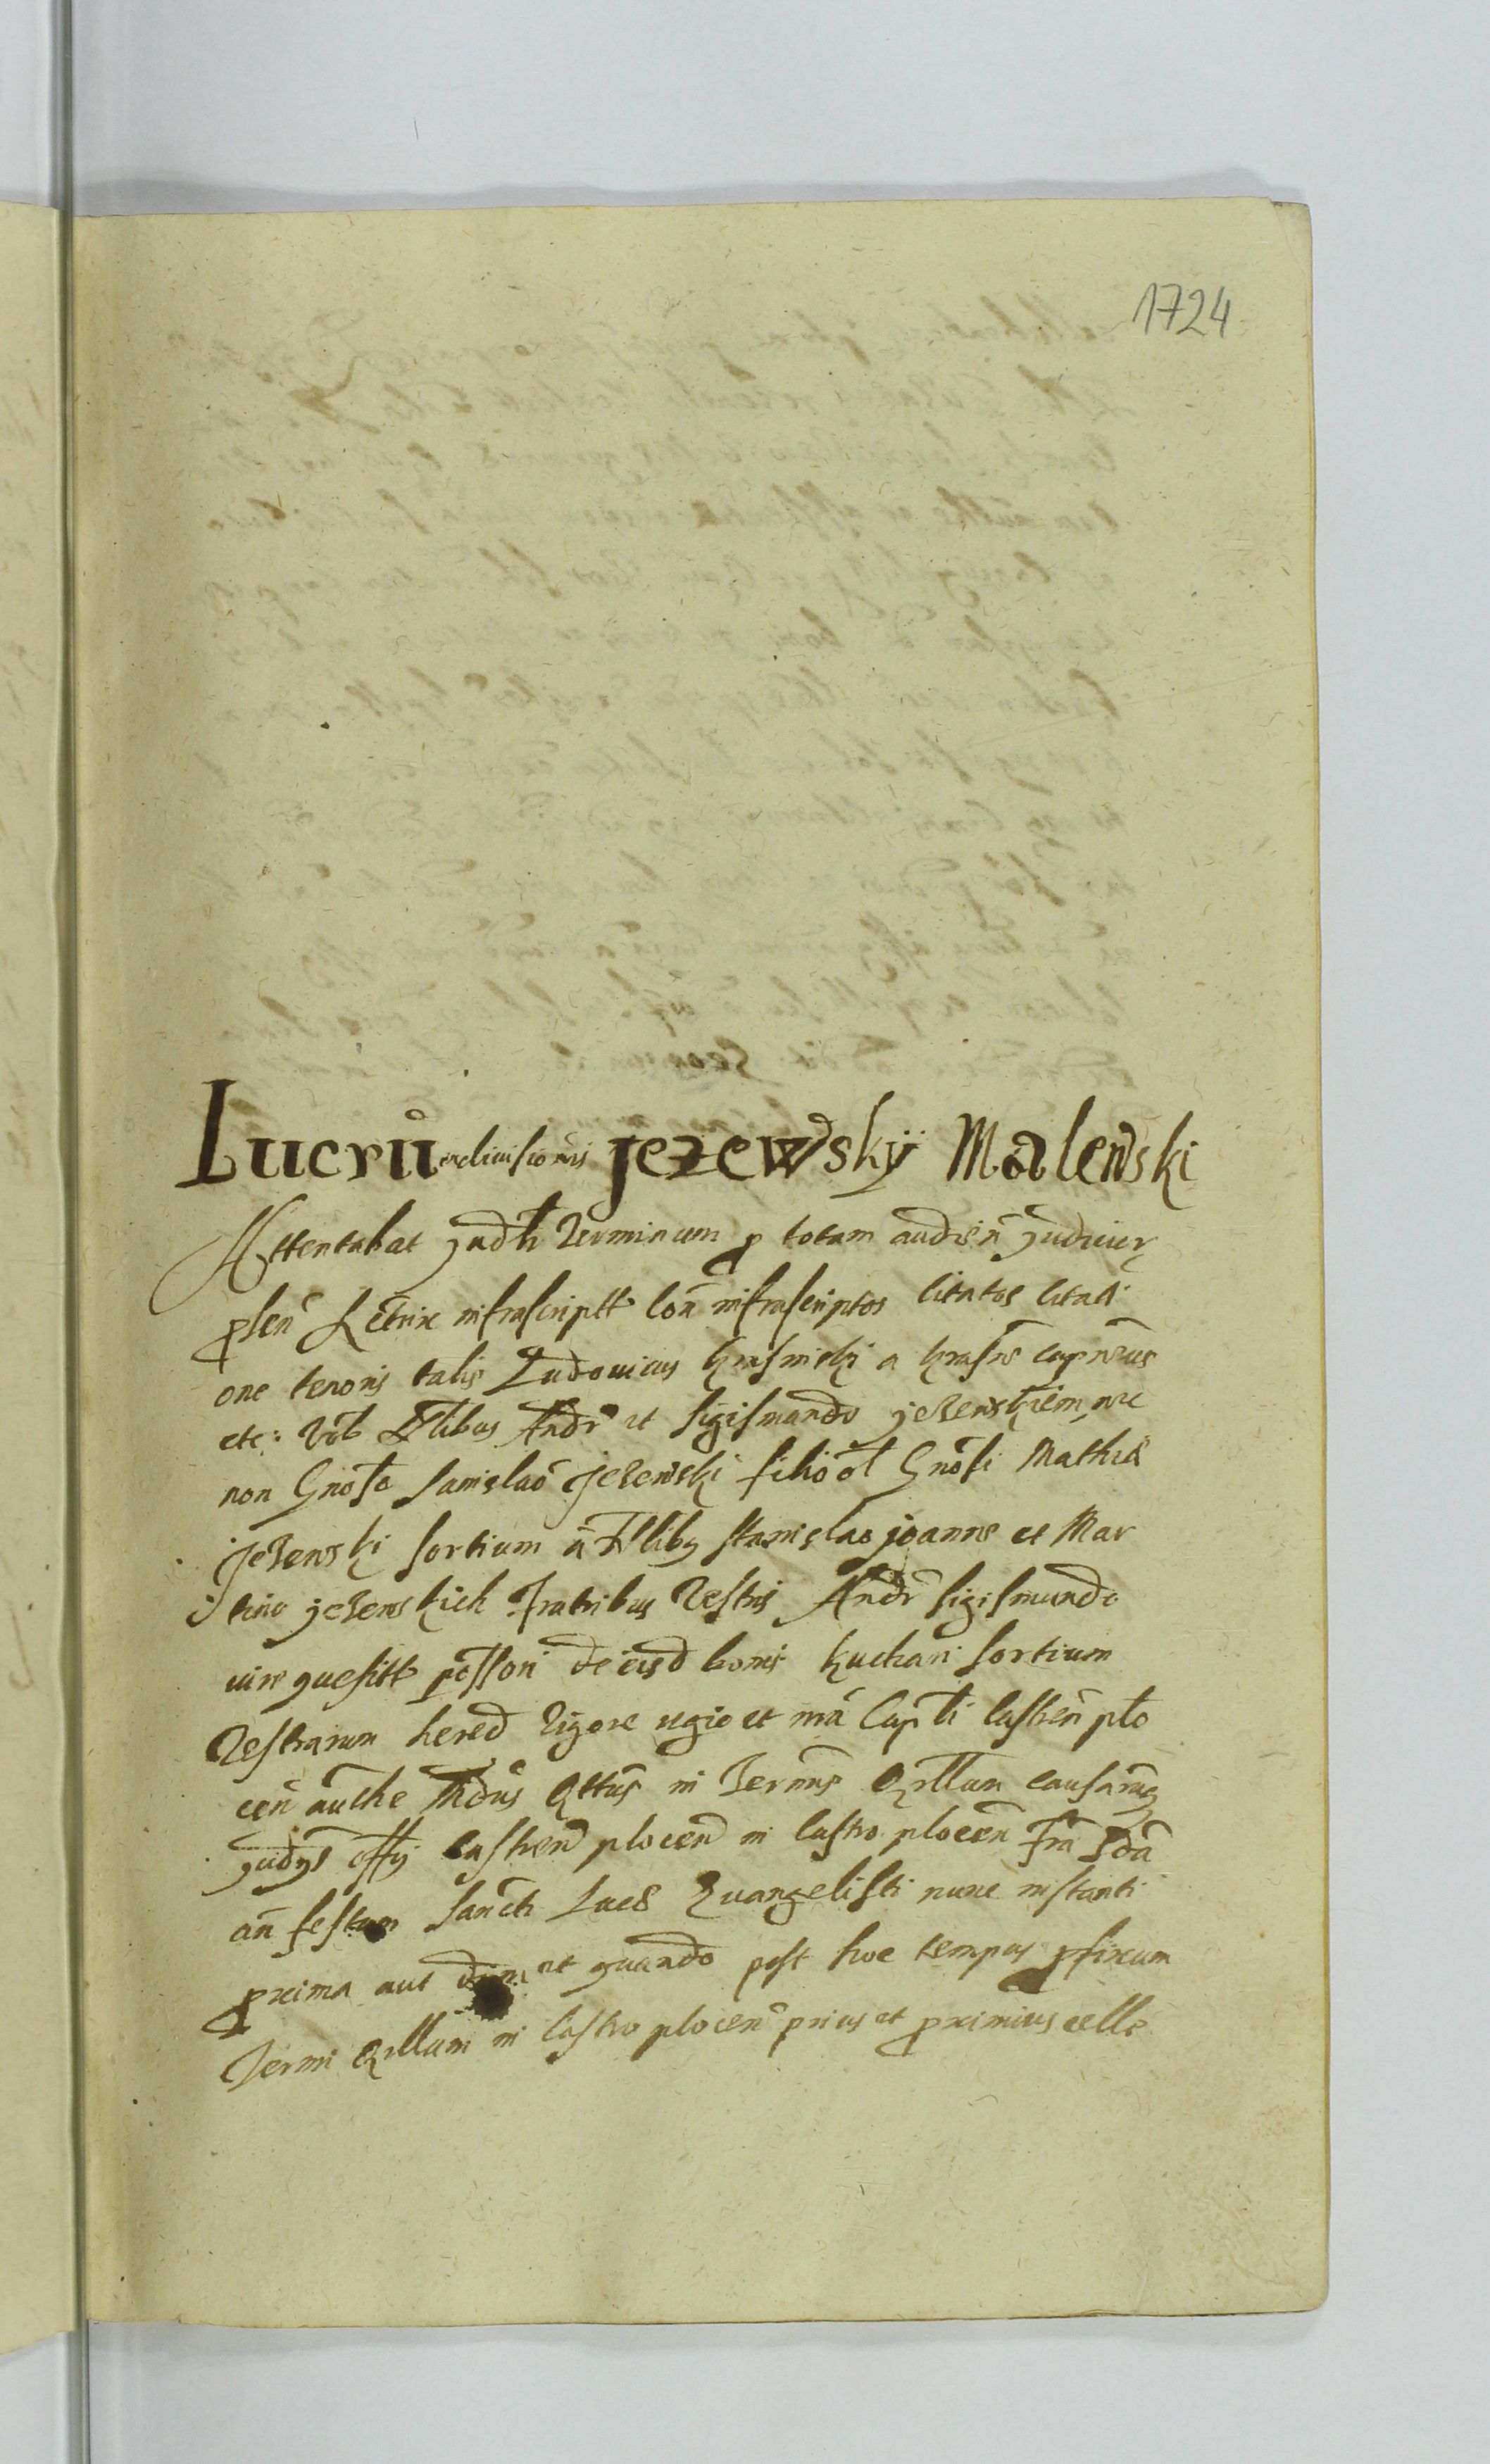 1724
Lucrū condiuisionis jezewskÿ Malewski
Attentabat judtr Terminum p totam audien judicier
psen Lectrix infrascriptt con infrascriptos Citatos Citati
one tenoris talis Ludouicus krasinski a krasne capneus
etc: Vob Nbilibus Andr et Sigismando jezewskiem nec
non Gnoso Sanislao Jezewski filio ol Gnosi Mathiæ
Jezewski sortium a Nbiliby Stanislao joanne et Mar
tino jezewskich Fratribus Vestris Andr Sigismundo
iure quesitt posson de eisd bonis kuchari sortium
Vestrarum hered Rigore regio et mea Capti castren plo
cen authe Mdus Qttus in Termis Qrllum causarumq
judys offy castren plocen in Castro plocen Fra 2da
an festum Sancti Lucæ Euangelisti nunc instanti
pxima aut dum et quando post hoc tempus pfixum
Termi Qrllum in Castro plocen prius et pximius celle